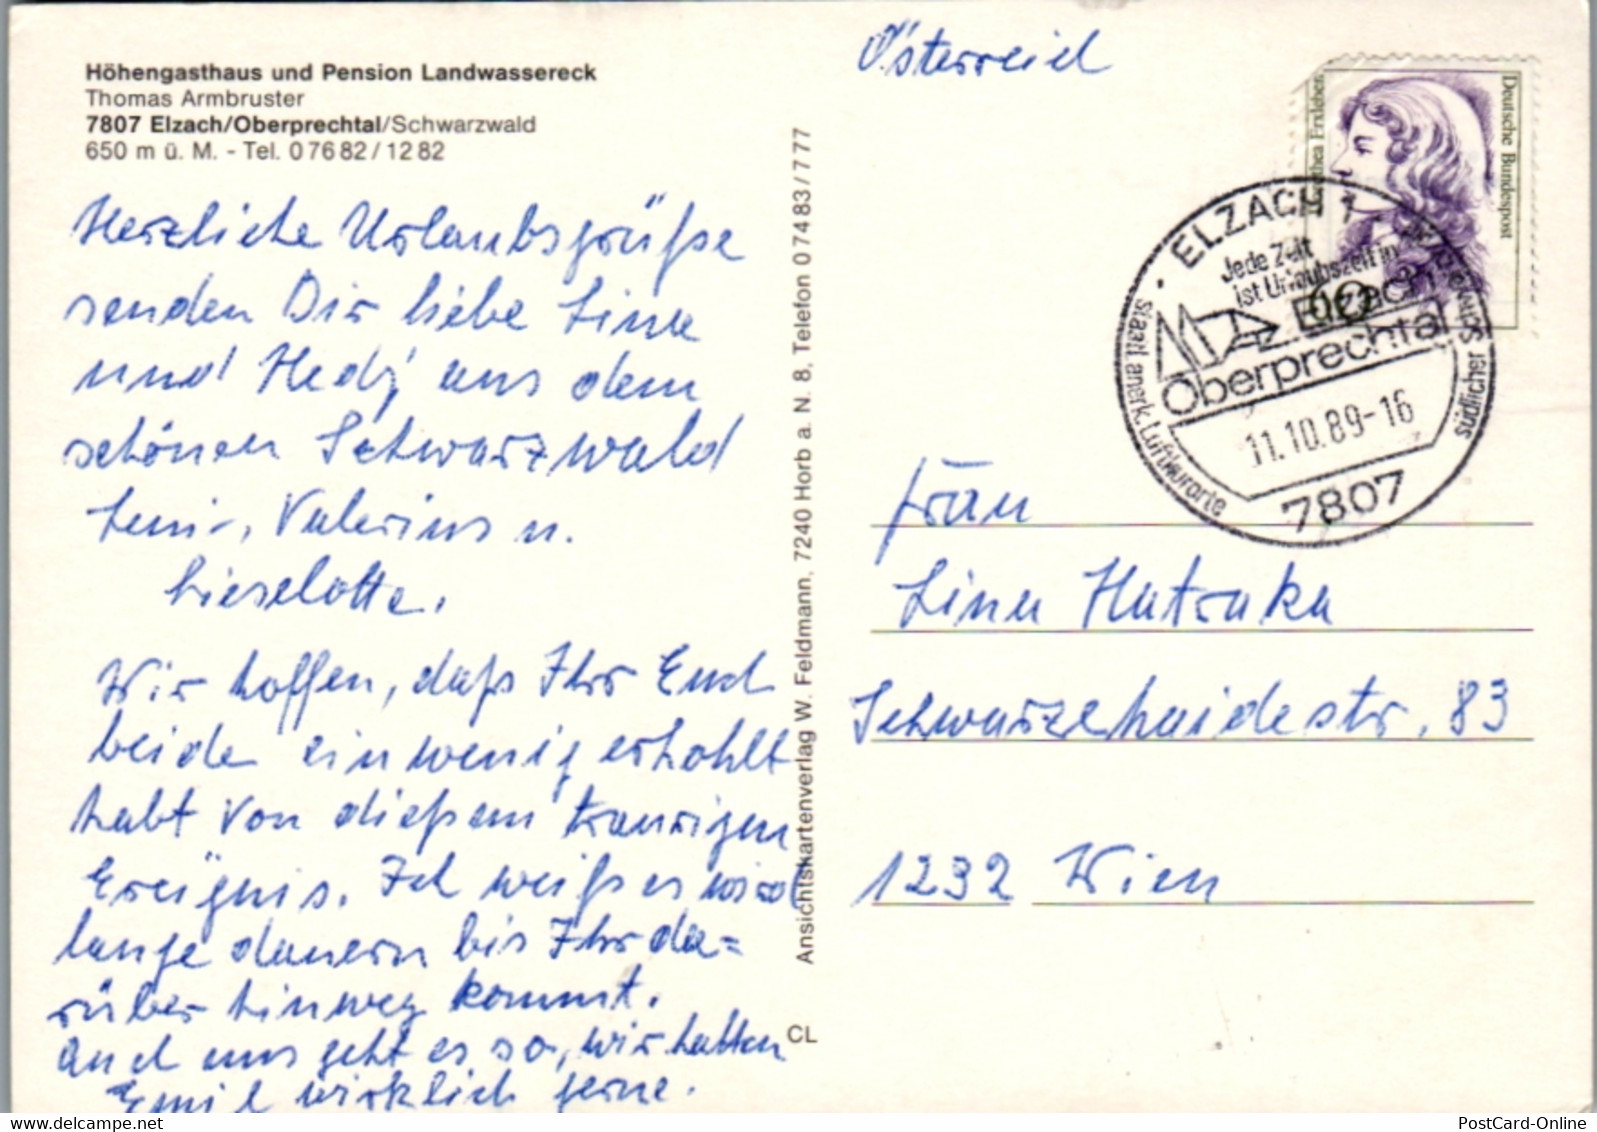 Höhengasthaus und Pension Landwassereck
Thomas Armbruster
7807 Elzach/Oberprechtal/Schwarzwald
650 m ü. M. - Tel. 07682/1282
Herzliche Urlaubsgrüße
senden Dir liebe Lina
und Hedy aus dem
schönen Schwarzwald
Leni, Valerius u.
Lieselotte.
Wir hoffen, daß Ihr Euch
beide ein wenig erhohlt
habt von dießem traurigen
Ereignis. Ich weiß es wird
lange dauern bis Ihr da=
rüber hinweg kommt.
Auch uns geht es so, wir hatten
Emil wirklich gerne.
Ansichtskartenverlag W. Feldmann, 7240 Horb a. N. 8, Telefon 07483/777
CL
Österreich
Deutsche Bundespost
thea Erxleben
60
ELZACH 1
Jede Zeit
ist Urlaubszeit in
Elzach
Oberprechtal
11.10.89-16
7807
Staatl anerk. Luftkurorte
südlicher Schwarzwald
Frau
Lina Hatraka
Schwarzehaidestr. 83
1232 Wien
PostCard-Online